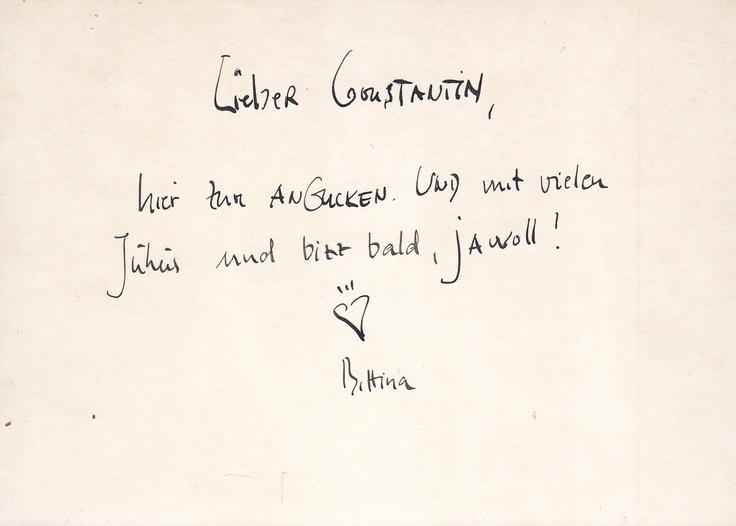 Lieber Constantin,
hier zum ANGUCKEN. UND mit vielen
Jühüs und bizz bald, jawoll!
Bettina